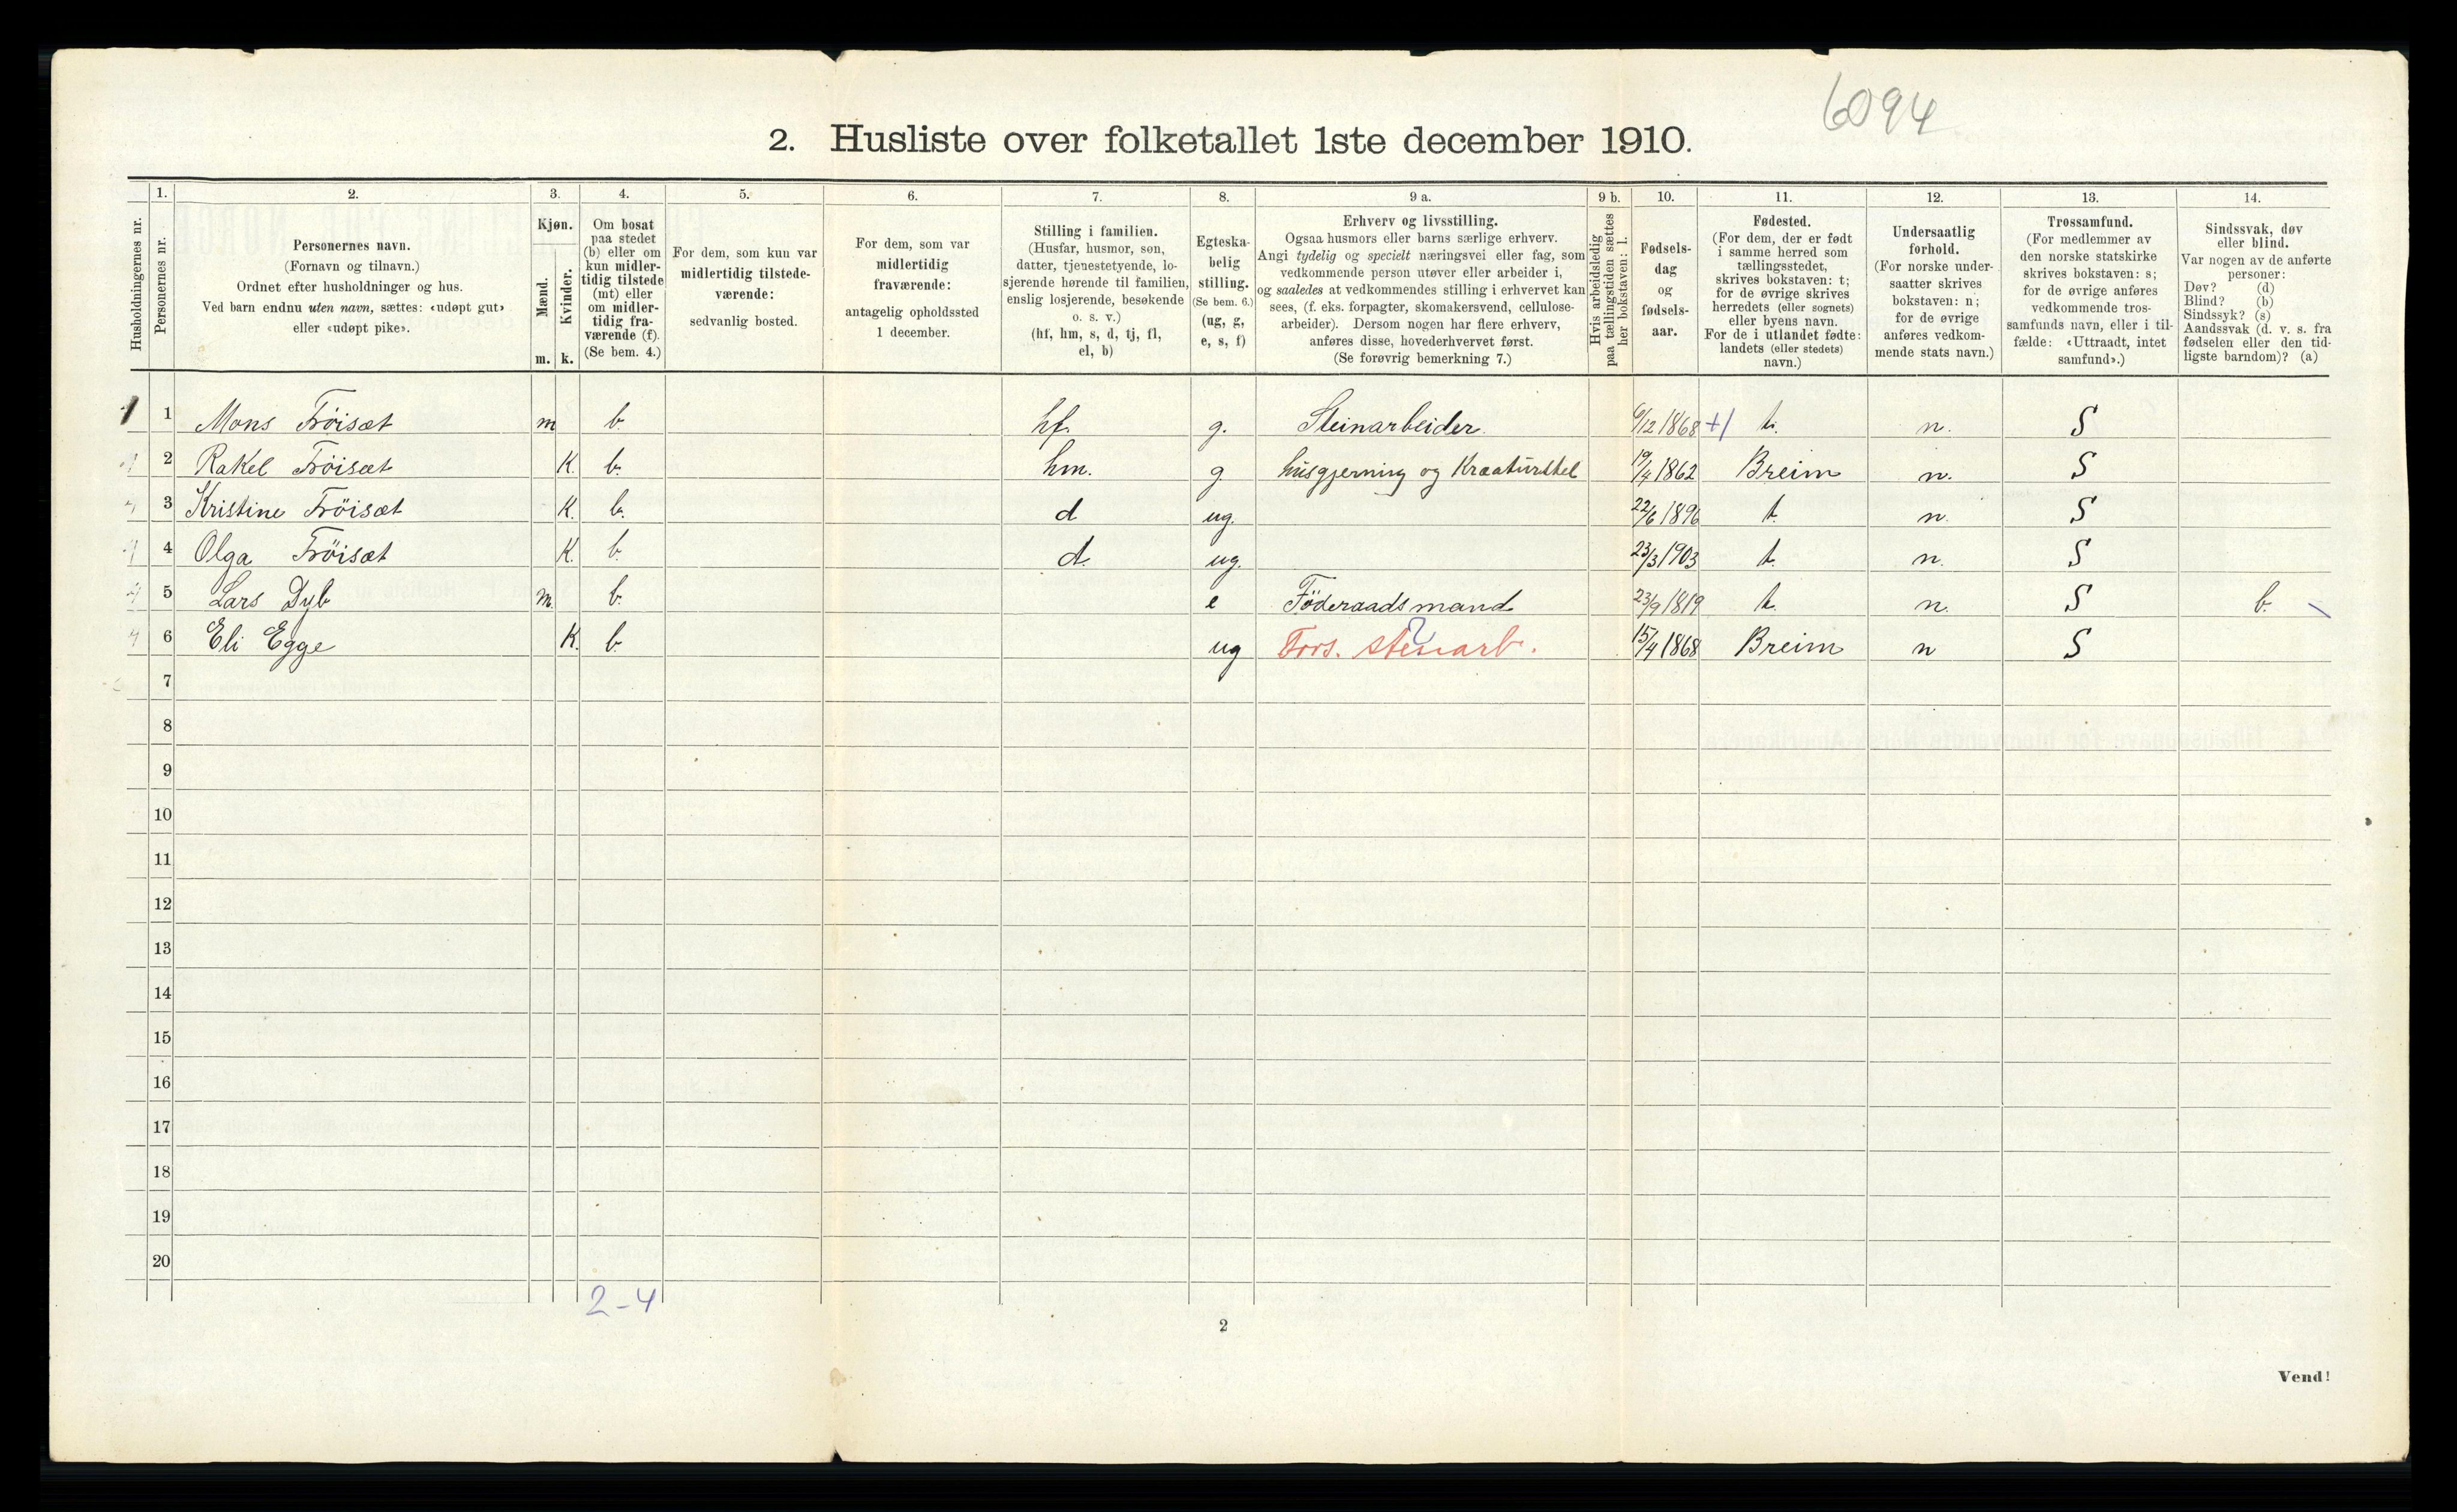 6094
2. Husliste over folketallet 1ste december 1910.
Husholdningernes nr.
1.
Personernes nr.
2.
Personernes navn.
(Fornavn og tilnavn.)
Ordnet efter husholdninger og hus.
Ved barn endnu uten navn, sættes: «udøpt gut»
eller «udøpt pike».
3.
Kjøn.
Mænd.
m.
Kvinder.
k.
4.
Om bosat
paa stedet
(b) eller om
kun midler-
tidig tilstede
(mt) eller
om midler-
tidig fra-
værende (f).
(Se bem. 4.)
5.
For dem, som kun var
midlertidig tilstede-
værende:
sedvanlig bosted.
6.
For dem, som var
midlertidig
fraværende:
antagelig opholdssted
1 december.
7.
Stilling i familien.
(Husfar, husmor, søn,
datter, tjenestetyende, lo-
sjerende hørende til familien,
enslig losjerende, besøkende
o. s. v.)
(hf, hm, s, d, tj, fl,
el, b)
8.
Egteska-
belig
stilling.
(Se bem. 6.)
(ug, g,
e, s, f)
9 a.
Erhverv og livsstilling.
Ogsaa husmors eller barns særlige erhverv.
Angi tydelig og specielt næringsvei eller fag, som
vedkommende person utøver eller arbeider i,
og saaledes at vedkommendes stilling i erhvervet kan
sees, (f. eks. forpagter, skomakersvend, cellulose-
arbeider). Dersom nogen har flere erhverv,
anføres disse, hovederhvervet først.
(Se forøvrig bemerkning 7.)
9 b.
Hvis arbeidsledig
paa tællingstiden sættes
her bokstaven: l.
10.
Fødsels-
dag
og
fødsels-
aar.
11.
Fødested.
(For dem, der er født
i samme herred som
tællingsstedet,
skrives bokstaven: t;
for de øvrige skrives
herredets (eller sognets)
eller byens navn.
For de i utlandet fødte:
landets (eller stedets)
navn.)
12.
Undersaatlig
forhold.
(For norske under-
saatter skrives
bokstaven: n;
for de øvrige
anføres vedkom-
mende stats navn.)
13.
Trossamfund.
(For medlemmer av
den norske statskirke
skrives bokstaven: s;
for de øvrige anføres
vedkommende tros-
samfunds navn, eller i til-
fælde: «Uttraadt, intet
samfund».)
14.
Sindssvak, døv
eller blind.
Var nogen av de anførte
personer:
Døv? (d)
Blind? (b)
Sindssyk? (s)
Aandssvak (d. v. s. fra
fødselen eller den tid-
ligste barndom)? (a)
1 1 Mons Fröisæt m b. hf. g. Steinarbeider 6/12 1868 +1 t. n. S
2 Rakel Fröisæt K. b. hm. g. husgjerning og Kreaturstel 19/4 1862 Breim n. S
3 Kristine Fröisæt K. b. d ug. 22/6 1896 t. n. S
4 Olga Fröisæt K. b. d. ug. 23/3 1903 t. n. S
5 Lars Dyb m. b. e Föderaadsmand 23/9 1819 t. n. S b.
6 Eli Egge K. b. ug Fors. stenarb. ? 15/4 1868 Breim n S
7
8
9
10
11
12
13
14
15
16
17
18
19
20
2-4
2
Vend!